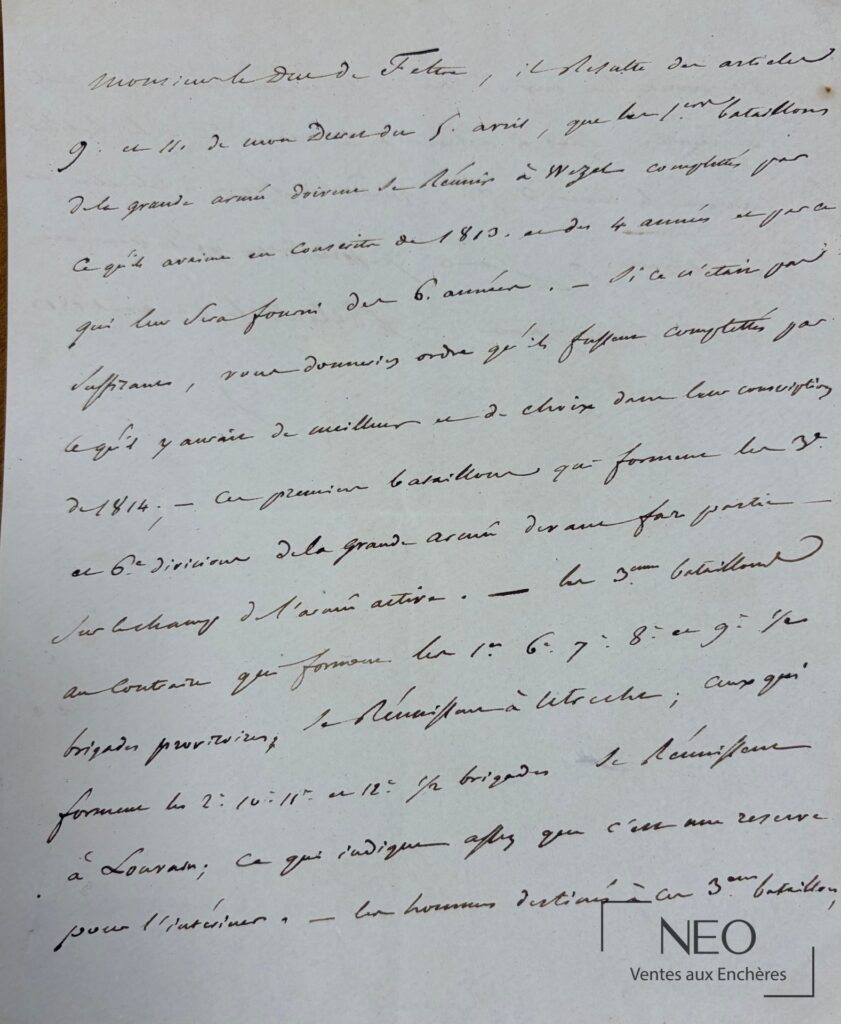 Monsieur le Duc de Feltre, il Résulte des articles
9. et 11. de mon Decret du 5. avril, que les 1ers bataillons
de la grande armée doivent se Réunir à Wezel complettés par
ce qu'ils avaient en conscrits de 1813. et des 4 années et par ce
qui leur sera fourni des 6. années. — Si ce n'était pas
suffisant, vous donneriez ordre qu'ils fussent complettés par
ce qu'il y aurait de meilleur et de choix dans leur conscription
de 1814; — Ces premiers bataillons qui forment les 3e.
et 6e divisions de la grande armée devant fair partie —
sur le champ de l'armée active. — les 3emes bataillons
au Contraire qui forment les 1re 6e 7e 8e et 9e 1/2
brigades provisoires, se Réunissent à Utrecht; Ceux qui
forment les 2e 10e 11e et 12e 1/2 brigades se Réunissent
à Louvain; Ce qui indique assez que c'est une reserve
pour l'intérieur. — les hommes destinés à ces 3emes bataillons,
NEO
Ventes aux Enchères